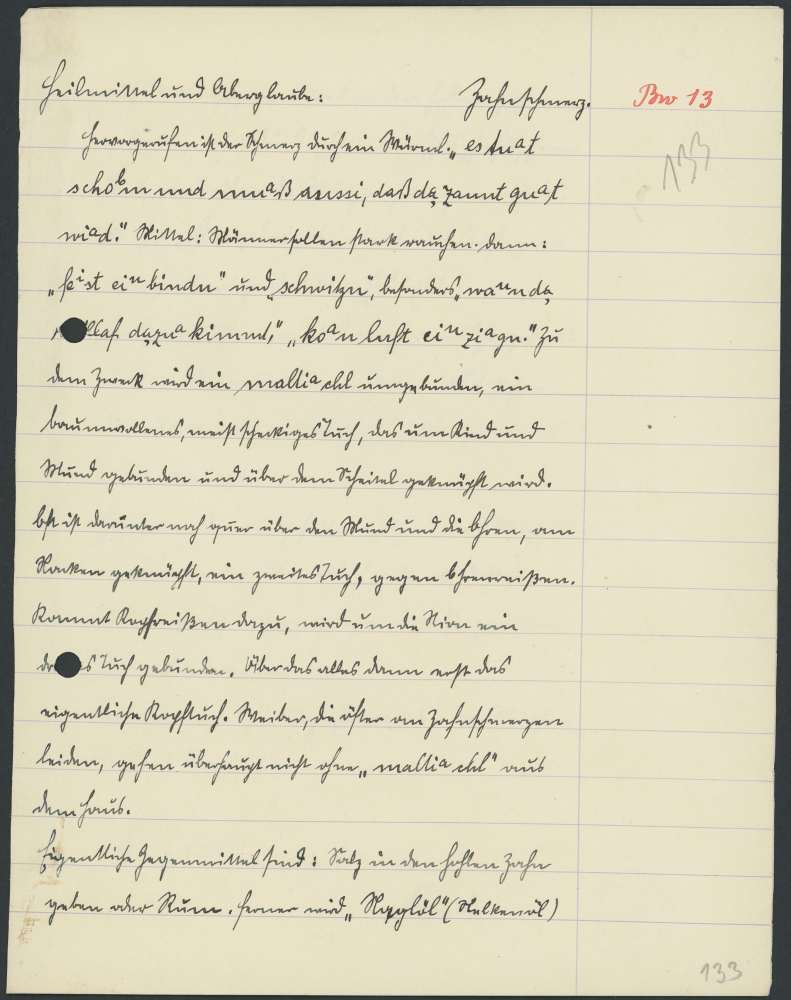 Heilmittel und Aberglaube: Zahnschmerz. Bw 13
133
Hervorgerufen ist der Schmerz durch ein Würml. „es tuat
schobm und muaß aussi, daß da zannt guat
wiad." Mittel: Männer sollen stark rauchen. dann:
„feist einbindn" und „schwitzn", besonders „wann da
dazua kimmt," „koan luft einziagn." Zu
dem Zweck wird ein maltiachl umgebunden, ein
baumwollenes, meist scheckiges Tuch, das um Kind und
Mund gebunden und über dem Scheitel geknüpft wird.
Oft ist darunter noch quer über den Mund und die Ohren, am
Nacken geknüpft, ein zweites Tuch, gegen Ohrenreißen.
Kommt Kopfreißen dazu, wird um die Stirn ein
drittes Tuch gebunden. Über das alles dann erst das
eigentliche Kopftuch. Weiber, die öfter an Zahnschmerzen
leiden, gehen überhaupt nicht ohne „maltiachl" aus
dem Haus.
Eigentliche Gegenmittel sind: Salz in den hohlen Zahn
geben oder Rum. Ferner wird „Nagglöl" (Nelkenöl)
133